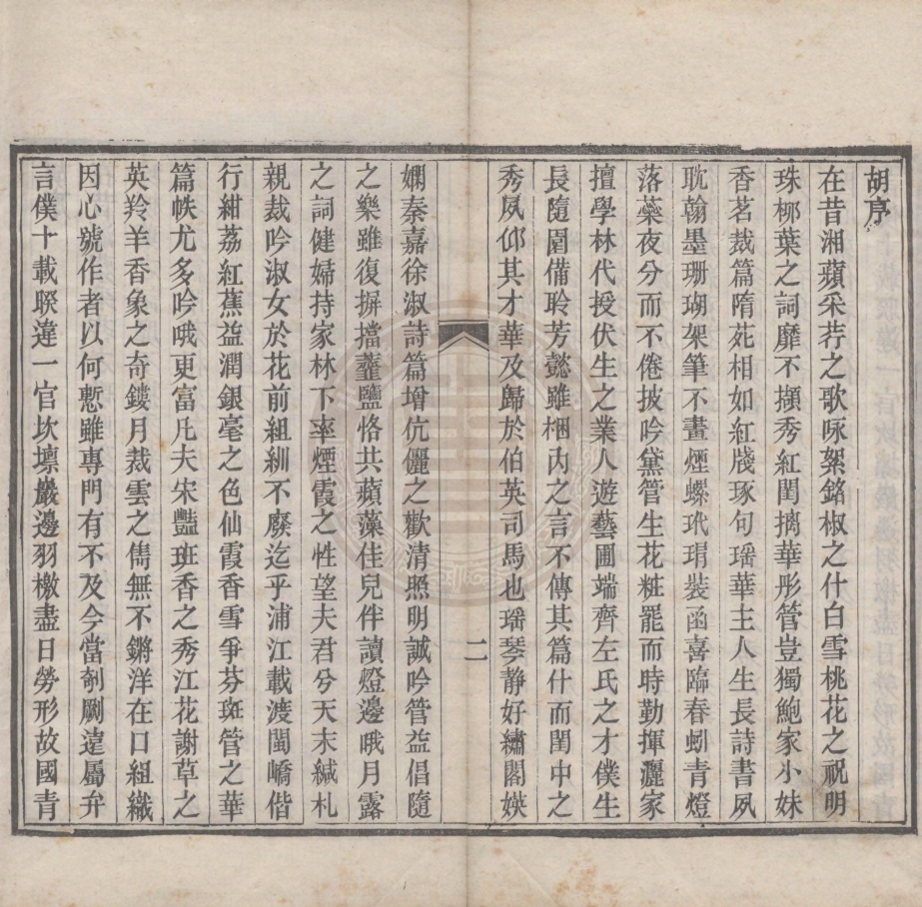 胡序
在昔湘蘋采荇之歌咏絮銘椒之什白雪桃花之祝明
珠柳葉之詞靡不擷秀紅閨摛華彤管豈獨鮑家小妹
香茗裁篇隋苑相如紅牋琢句瑶華主人生長詩書夙
耽翰墨珊瑚架筆不畫煙螺玳瑁裝函喜臨春蚓青燈
落蘂夜分而不倦披吟黛管生花粧罷而時勤揮灑家
擅學林代授伏生之業人遊藝圃端齊左氏之才僕生
長隨園備聆芳懿雖梱內之言不傳其篇什而閨中之
秀夙仰其才華及歸於伯英司馬也瑶琴静好繡閣媖
二
嫻秦嘉徐淑詩篇增伉儷之歡清照明誠吟管益倡隨
之樂雖復摒擋虀鹽恪共蘋藻佳兒伴讀燈邊哦月露
之詞健婦持家林下率煙霞之性望夫君兮天末緘札
親裁吟淑女於花前組紃不廢迄乎浦江載渡閩嶠偕
行紺荔紅蕉益潤銀毫之色仙霞香雪爭芬斑管之華
篇帙尤多吟哦更富凡夫宋豔班香之秀江花謝草之
英羚羊香象之奇鏤月裁雲之儁無不鏘洋在口組織
因心號作者以何慙雖專門有不及今當剞劂遠屬弁
言僕十載暌違一官坎壈巖邊羽檄盡日勞形故國青